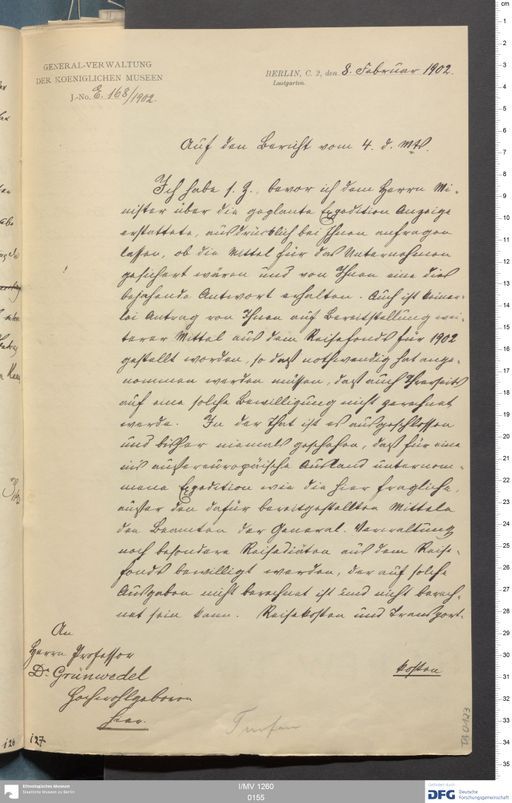 GENERAL-VERWALTUNG
DER KOENIGLICHEN MUSEEN
J.-No. E. 168/1902.
BERLIN, C. 2, den 8. Februar 1902.
Lustgarten.
Auf den Bericht vom 4. d. Mts.
Ich habe s. Z., bevor ich dem Herrn Mi-
nister über die geplante Expedition Anzeige
erstattete, ausdrücklich bei Ihnen anfragen
lassen, ob die Mittel für das Unternehmen
gesichert wären und von Ihnen eine dies
bejahende Antwort erhalten. Auch ist keiner-
lei Antrag von Ihnen auf Bereitstellung wei-
terer Mittel aus dem Reisefonds für 1902
gestellt worden, so daß nothwendig hat ange-
nommen werden müssen, daß auch Ihrerseits
auf eine solche Bewilligung nicht gerechnet
werde. In der That ist es ausgeschlossen
und bisher niemals geschehen, daß für eine
ins außereuropäische Ausland unternom-
mene Expedition wie die hier fragliche,
außer den dafür bereitgestellten Mitteln
den Beamten der General-Verwaltung
noch besondere Reisediäten aus dem Reise-
fonds bewilligt werden, der auf solche
Ausgaben nicht berechnet ist und nicht berech-
net sein kann. Reisekosten und Transport-
kosten
An
Herrn Professor
Dr Grünwedel
Hochwohlgeboren
hier.
Turfan
127
TA 0123
I/MV 1260
0155
Ethnologisches Museum
Staatliche Museen zu Berlin
DFG Deutsche
Forschungsgemeinschaft